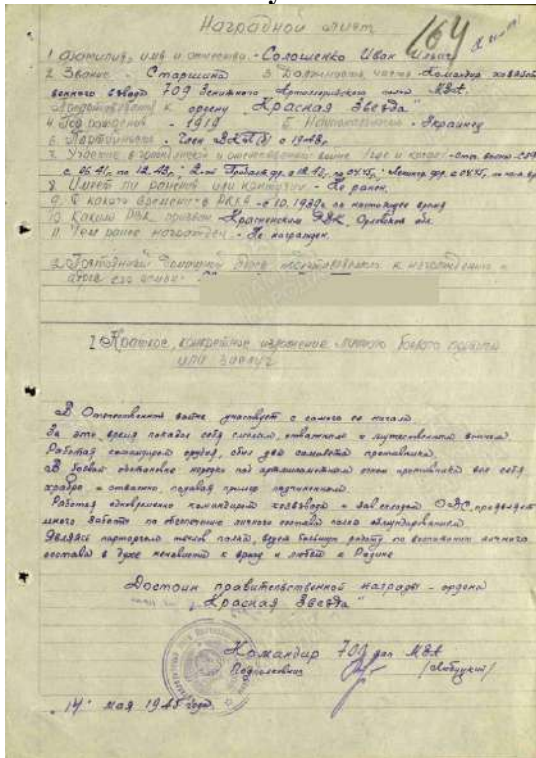 Наградной лист
164
1. Фамилия, имя и отчество - Солошенко Иван Ильич
2. Звание - Старшина 3. Должность, часть - Командир хозяйст-
венного взвода 709 Зенитного Артиллерийского полка МЗА.
Представляется к ордену "Красная Звезда"
4. Год рождения - 1919 5. Национальность - Украинец
6. Партийность - Член ВКП(б) с 1943г.
7. Участие в гражданской и отечественной войне (где и когда)
с 06.41г. по 12.43г., 2-ой Прибалт. фр.
8. Имеет ли ранения или контузии - Не ранен.
9. С какого времени в РККА - с 10.1939г. по настоящее время
10. Каким РВК призван - РВК, Орловской обл.
11. Чем ранее награжден - Не награжден.
I Краткое, конкретное изложение личного боевого подвига
или заслуг
В Отечественной войне участвует с самого ее начала.
За это время показал себя смелым, отважным и мужественным воином.
Работая командиром орудия, сбил два самолета противника.
В боевой обстановке нередко под артиллерийским огнем противника вел себя
храбро и отважно, подавая пример подчиненным.
Работая одновременно командиром хозвзвода и зав. складом ОВС, проявляет
много заботы по обеспечению личного состава полка обмундированием.
Являясь парторгом тылов полка, ведет большую работу по воспитанию личного
состава в духе ненависти к врагу и любви к Родине
Достоин правительственной награды - ордена
"Красная Звезда"
Командир 709 зап МЗА
Подполковник /Любуцкий/
"14" мая 1945 года.